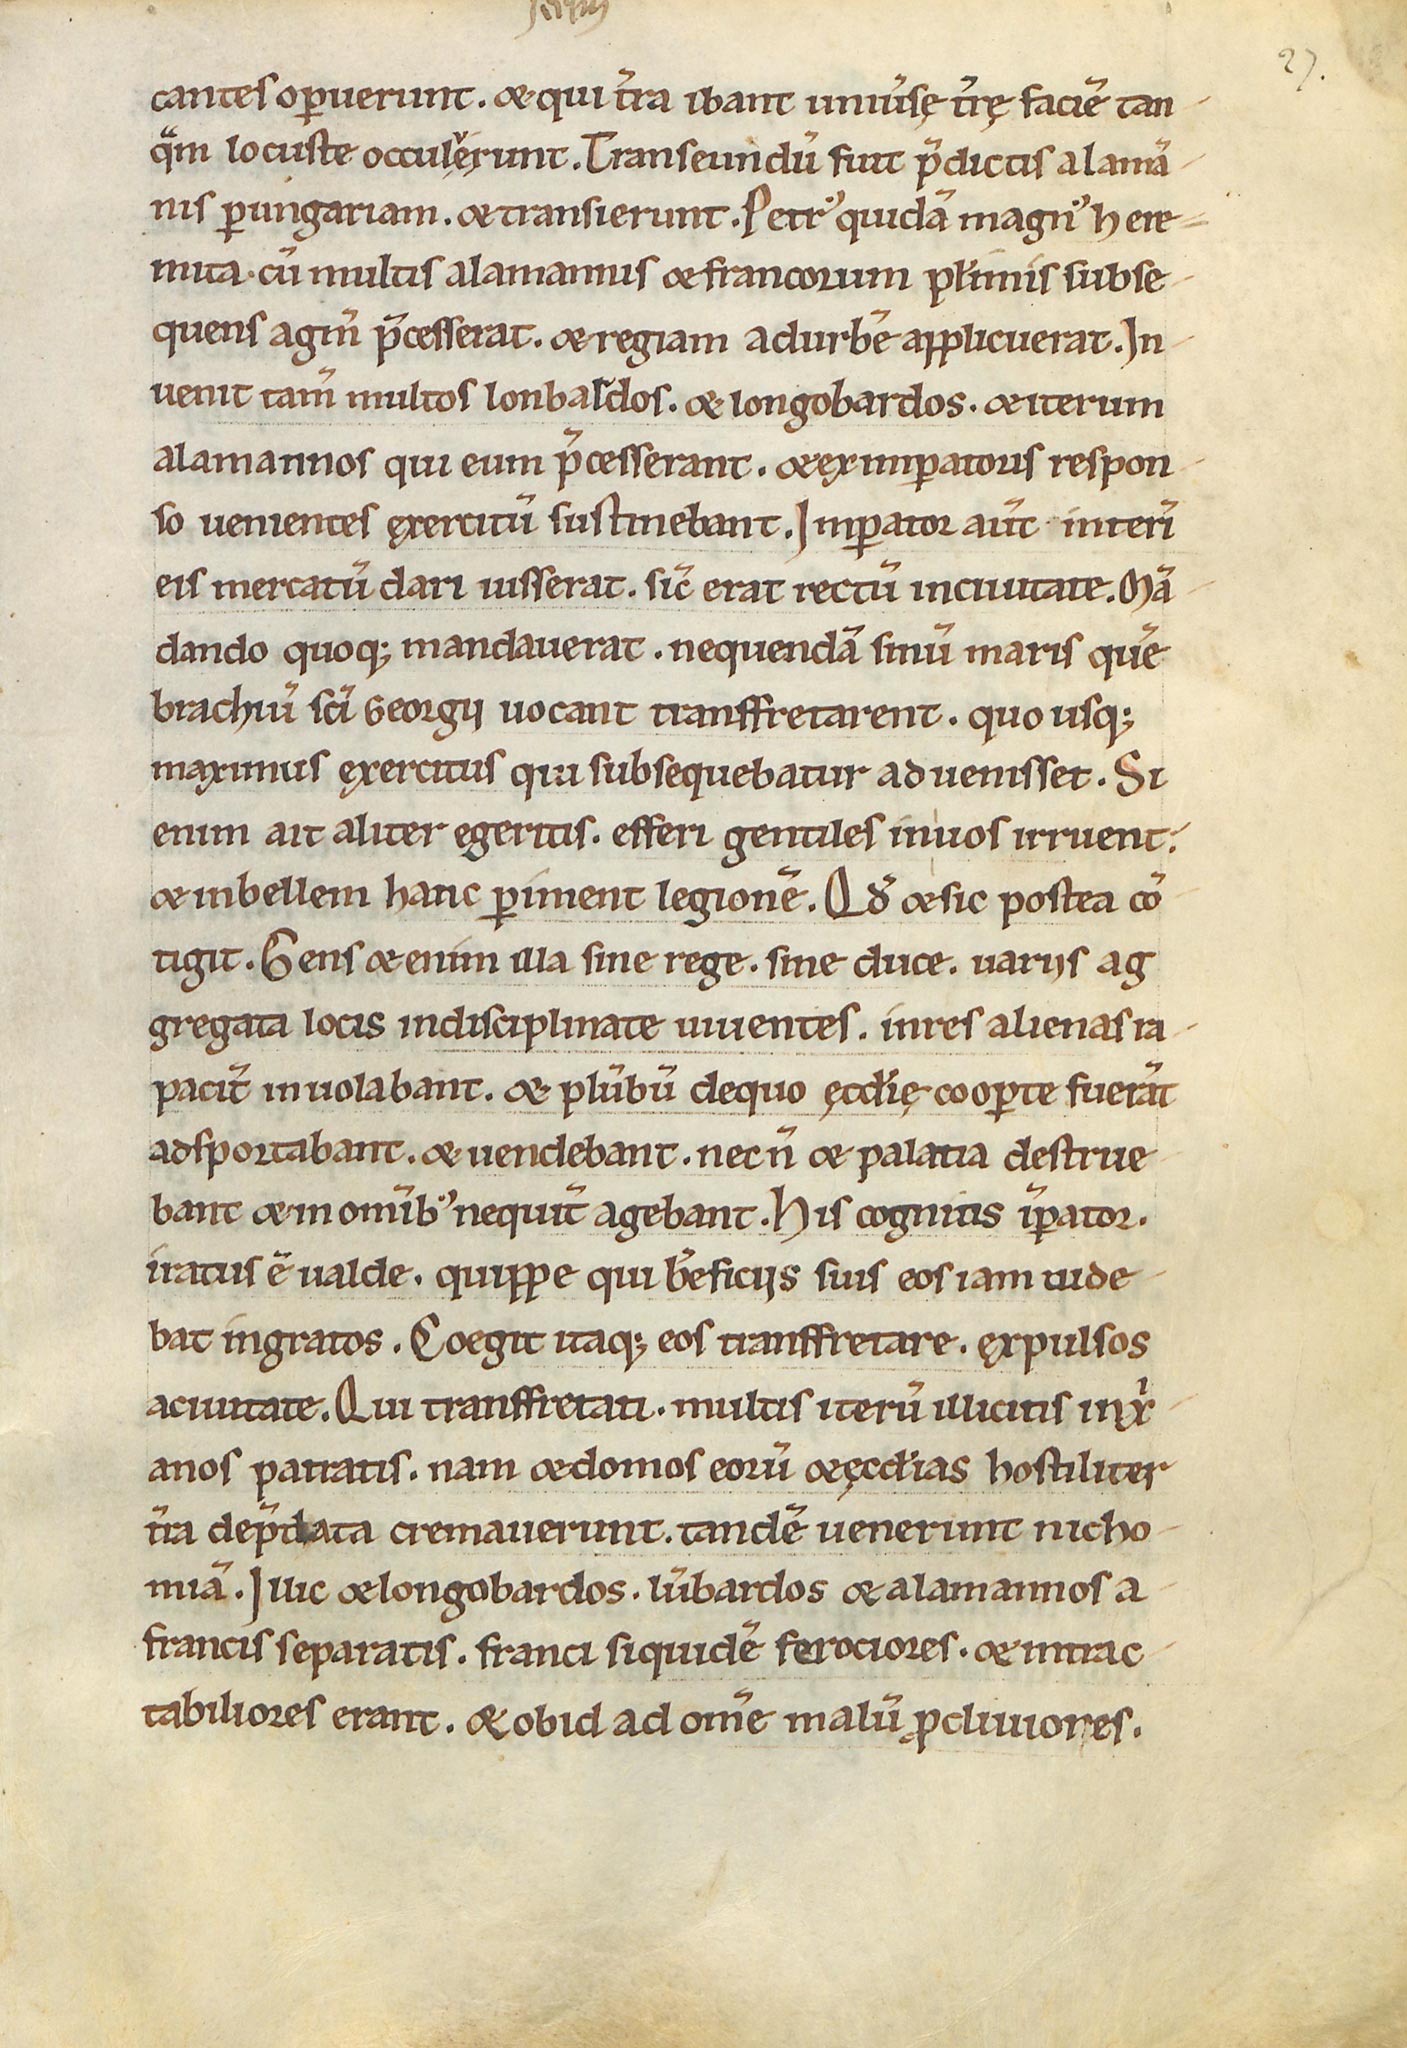 27.
cantes op̱uerunt. & qui t̄ra ibant uniūsę t̄rę faciē tan
q̄m locuste occulerunt. Transeundū fuit p̄dictis alamā
nis p̱ungariam. & transierunt. Petrꝰ quidā magnꝰ here
mita cū multis alamannis & francorum pl̄imis subse
quens agm̄ p̄cesserat. & regiam ad urbē applicuerat. In
uenit tam̄ multos lonbardos. & longobardos. & iterum
alamannos qui eum p̄cesserant. & ex imp̱atoris respon
so uenientes exercitū sustinebant. Imp̱ator aūt interī
eis mercatū dari iusserat. sic̄ erat rectū in ciuitate. Mā
dando quoq; mandauerat. ne quendā sinū maris quē
brachiū sc̄i Georgij uocant transffretarent. quo usq;
maximus exercitus qui subsequebatur aduenisset. Si
enim ait aliter egeritis. efferi gentiles in uos irruent.
& inbellem hanc p̱iment legionē. Qd̄ & sic postea cō
tigit. Gens & enim illa sine rege. sine duce. uarijs ag
gregata locis indisciplinate uiuentes. in res alienas ra
pacit̄ inuolabant. & plūbū de quo ęccl̄ię coop̱te fuerāt
adsportabant. & uendebant. nec n̄ & palatia destrue
bant & in om̄ibꝰ nequit̄ agebant. His cognitis ip̱̄ator.
iratus ē ualde. quippe qui b̄eficijs suis eos iam uide
bat ingratos. Coegit itaq; eos transffretare. expulsos
a ciuitate. Qui transffretati. multis iterū illicitis in xr̄i
anos patratis. nam & domos eorū & ęccl̄ias hostiliter
t̄ra dep̄data cremauerunt. tandē uenerunt nicho
miā. Illic & longobardos. lūbardos & alamannos a
francis separatis. franci siquidē ferociores. & intrac
tabiliores erant. & ob id ad om̄e malū ꝓcliuiores.